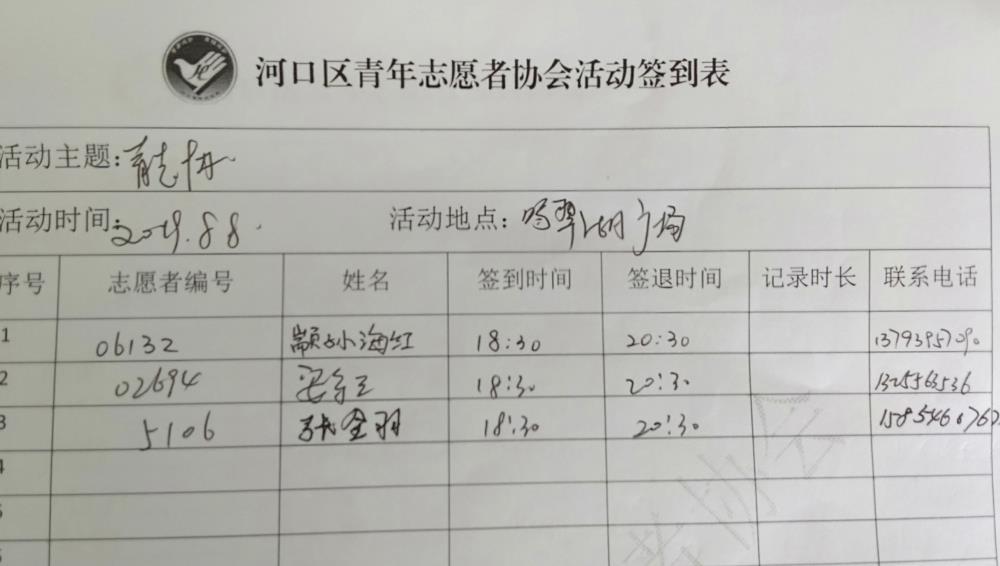 河口区青年志愿者协会活动签到表
活动主题:青志协
活动时间:2019.8.8. 活动地点:鸣翠湖广场
序号 志愿者编号 姓名 签到时间 签退时间 记录时长 联系电话
1 06132 颛孙海红 18:30 20:30 13793957090
2 02694 18:30 20:30 1325563536
3 5106 张金羽 18:30 20:30 1585460767
4
5
者协会